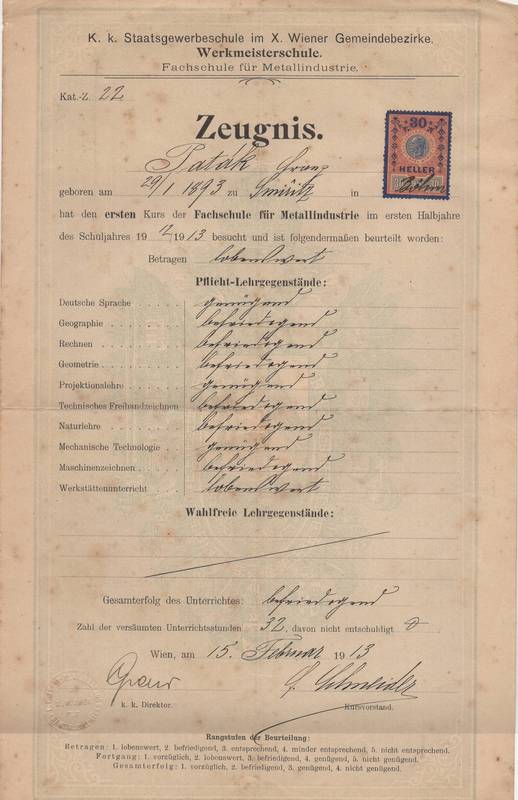 K. k. Staatsgewerbeschule im X. Wiener Gemeindebezirke.
Werkmeisterschule.
Fachschule für Metallindustrie.
Kat.-Z. 22
Zeugnis.
30
HELLER
Paták Franz
geboren am 29/1 1893 zu in Böhm
hat den ersten Kurs der Fachschule für Metallindustrie im ersten Halbjahre
des Schuljahres 1912/1913 besucht und ist folgendermaßen beurteilt worden:
Betragen lobenswert
Pflicht-Lehrgegenstände:
Deutsche Sprache . . . . . genügend
Geographie . . . . . . . befriedigend
Rechnen . . . . . . . . befriedigend
Geometrie . . . . . . . . befriedigend
Projektionslehre . . . . . genügend
Technisches Freihandzeichnen befriedigend
Naturlehre . . . . . . . befriedigend
Mechanische Technologie . . genügend
Maschinenzeichnen . . . . befriedigend
Werkstättenunterricht . . . lobenswert
Wahlfreie Lehrgegenstände:
Gesamterfolg des Unterrichtes: befriedigend
Zahl der versäumten Unterrichtsstunden 32, davon nicht entschuldigt 0
Wien, am 15. Februar 1913
G. Schneider
k. k. Direktor. Kursvorstand.
Rangstufen der Beurteilung:
Betragen: 1. lobenswert, 2. befriedigend, 3. entsprechend, 4. minder entsprechend, 5. nicht entsprechend.
Fortgang: 1. vorzüglich, 2. lobenswert, 3. befriedigend, 4. genügend, 5. nicht genügend.
Gesamterfolg: 1. vorzüglich, 2. befriedigend, 3. genügend, 4. nicht genügend.